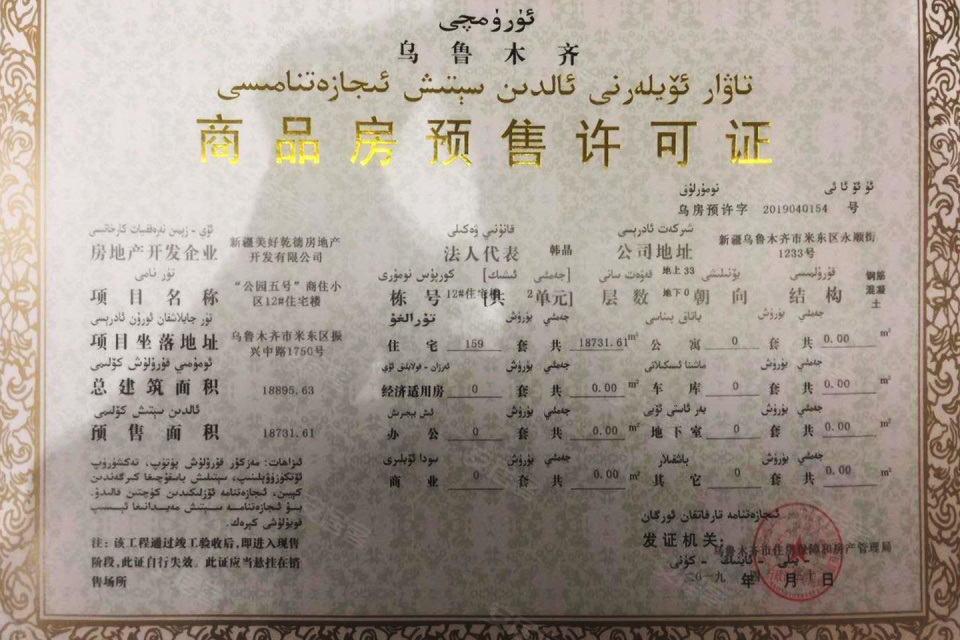 ئۈرۈمچى
乌鲁木齐
تاۋار ئۆيلەرنى ئالدىن سېتىش ئىجازەتنامىسى
商品房预售许可证
نومۇرلۇق
乌房预许字 2019040154 号
房地产开发企业 新疆美好乾德房地产开发有限公司
法人代表 韩晶
公司地址 新疆乌鲁木齐市米东区永顺街1233号
تۈر نامى
项目名称 “公园五号”商住小区12#住宅楼
栋号 12#住宅楼 [共 2 单元]
层数 地上 33 地下 0
朝向
结构 钢筋混凝土
项目坐落地址 乌鲁木齐市米东区振兴中路1750号
住宅 159 套 共 18731.61 m²
公寓 0 套 共 0.00 m²
ئومۇمىي قۇرۇلۇش كۆلىمى
总建筑面积 18895.63
经济适用房 0 套 共 0.00 m²
车库 0 套 共 0.00 m²
ئالدىن سېتىش كۆلىمى
预售面积 18731.61
办公 0 套 共 0.00 m²
地下室 0 套 共 0.00 m²
商业 0 套 共 0.00 m²
其它 0 套 共 0.00 m²
注：该工程通过竣工验收后，即进入现售
阶段，此证自行失效。此证应当悬挂在销
售场所
ئىجازەتنامە تارقاتقان ئورگان
发证机关：乌鲁木齐市住房保障和房产管理局
二〇一九 年 月 日